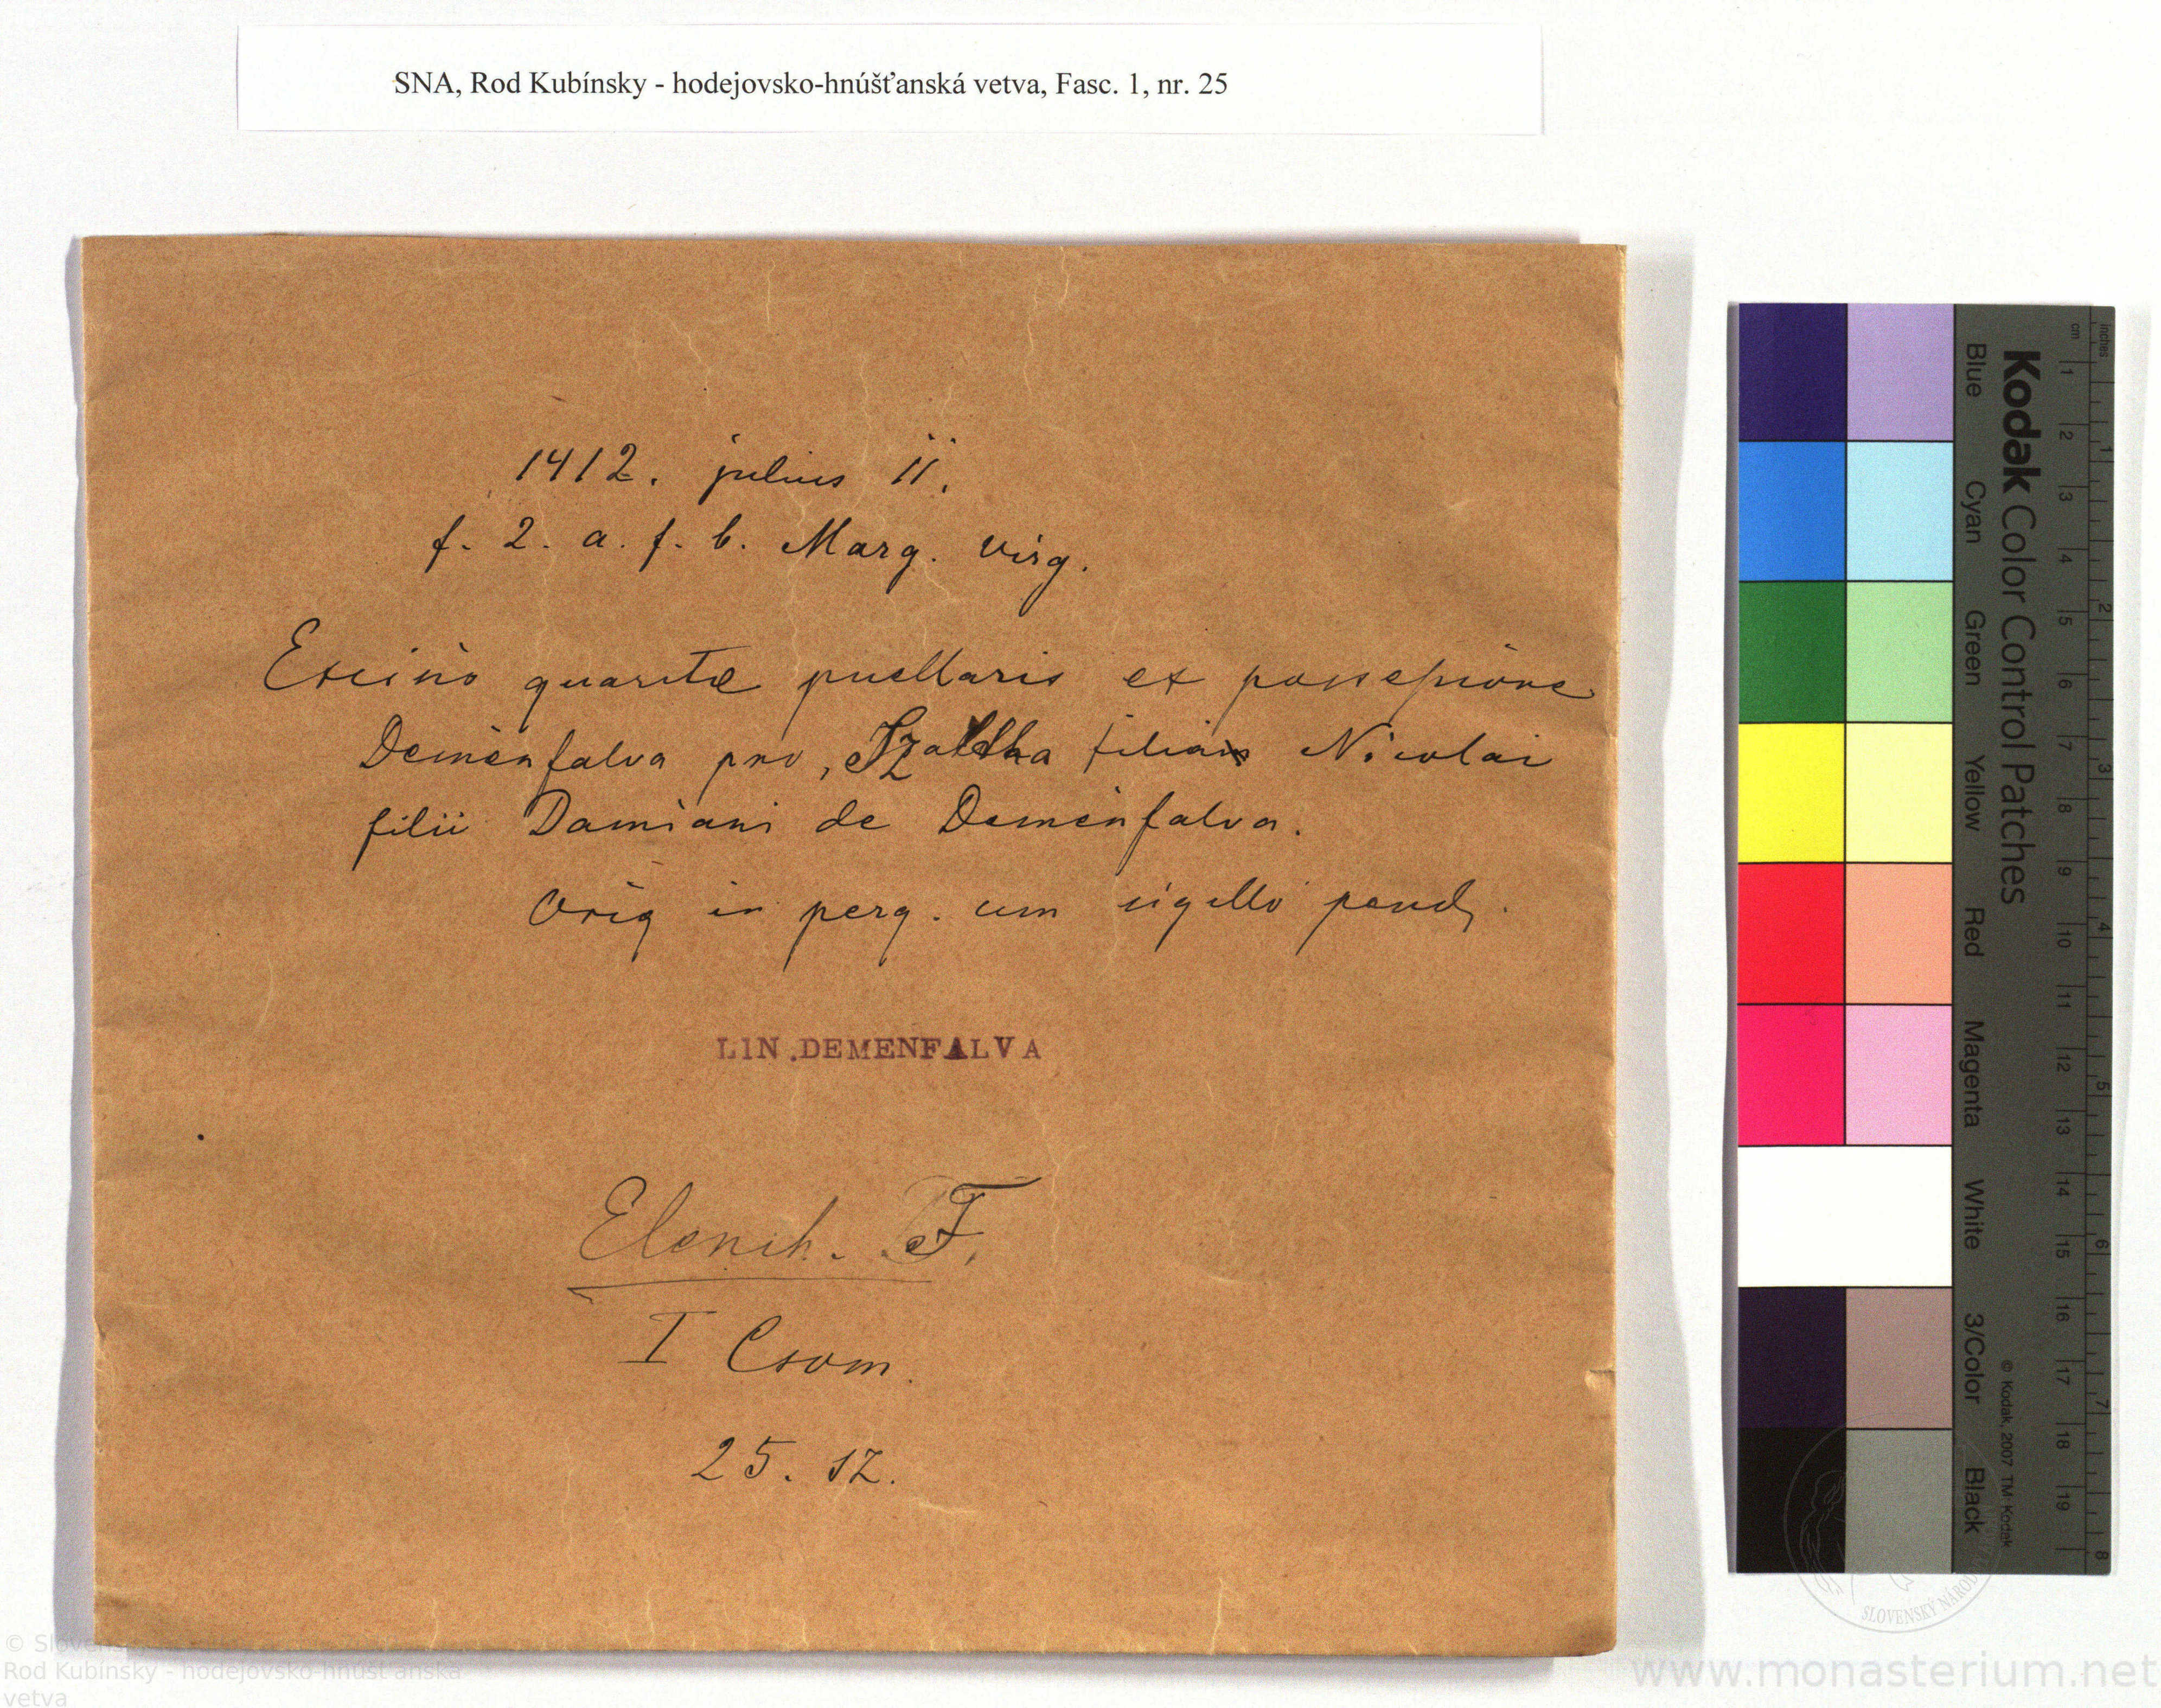 SNA, Rod Kubínsky - hodejovsko-hnúšťanská vetva, Fasc. 1, nr. 25
1412. julius 11.
f. 2. a. f. b. Marg. virg.
Excisio quartæ puellaris ex possessione
Deménfalva pro, filia Nicolai
filii Damiani de Deménfalva.
Orig in perg. cum sigillo pend.
LIN.DEMENFALVA
Elench. F.
I Csom.
25. sz.
Kodak Color Control Patches
Blue Cyan Green Yellow Red Magenta White 3/Color Black
© Kodak, 2007 TM: Kodak
cm 1 2 3 4 5 6 7 8 9 10 11 12 13 14 15 16 17 18 19
inches 1 2 3 4 5 6 7 8
SLOVENSKÝ NÁROD
© Slov
Rod Kubínsky - hodejovsko-hnúšťanská
vetva
www.monasterium.net